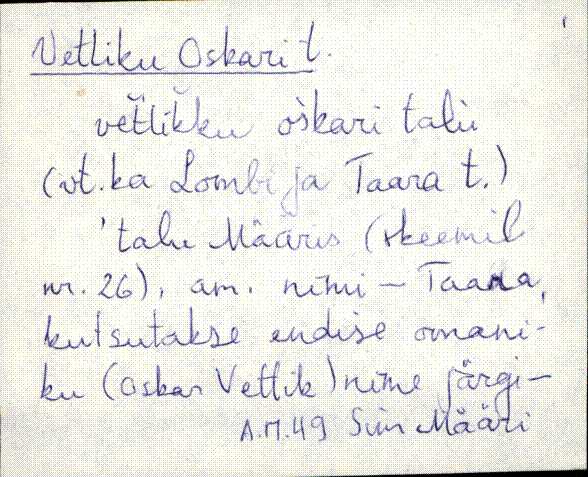 Vetliku Oskari t.
vetlikku oskari talu
(vt. ka Lombi ja Taara t.)
'talu Määris (skeemil
nr. 26), am. nimi – Taara,
kutsutakse endise omani-
ku (Oskar Vettik) nime järgi –
A.M.49 Sim Määri